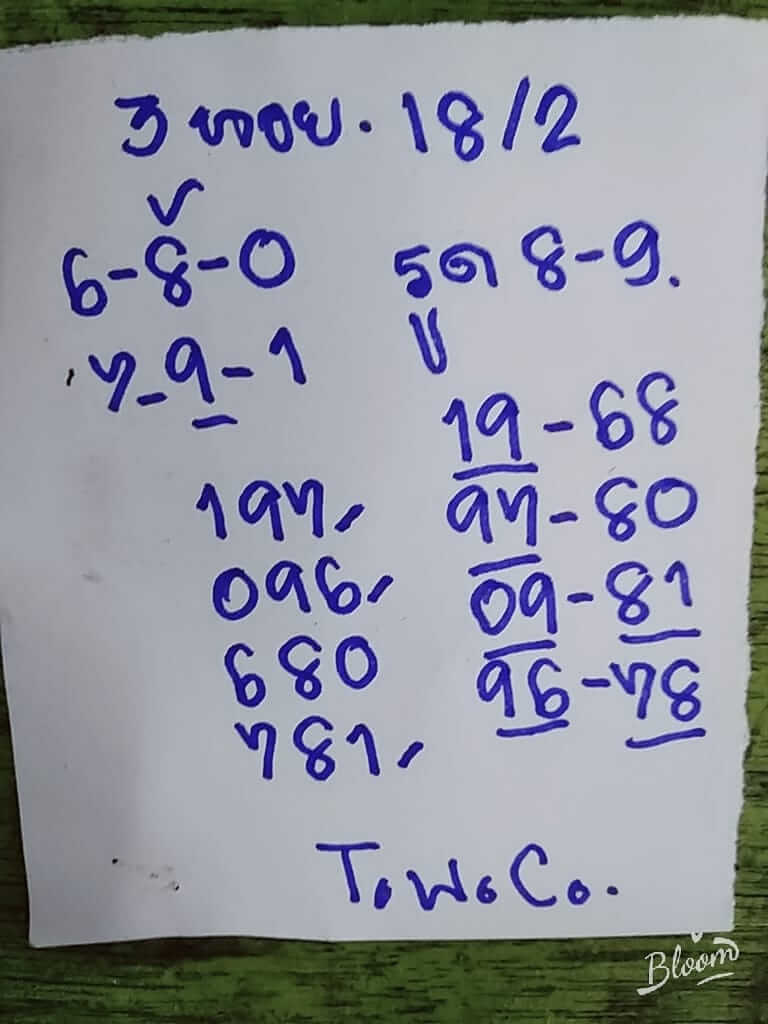 3 18/2
6-8-0 รูด 8-9.
7-9-1
19-68
197, 97-80
096, 09-81
680 96-78
781,
Bloom